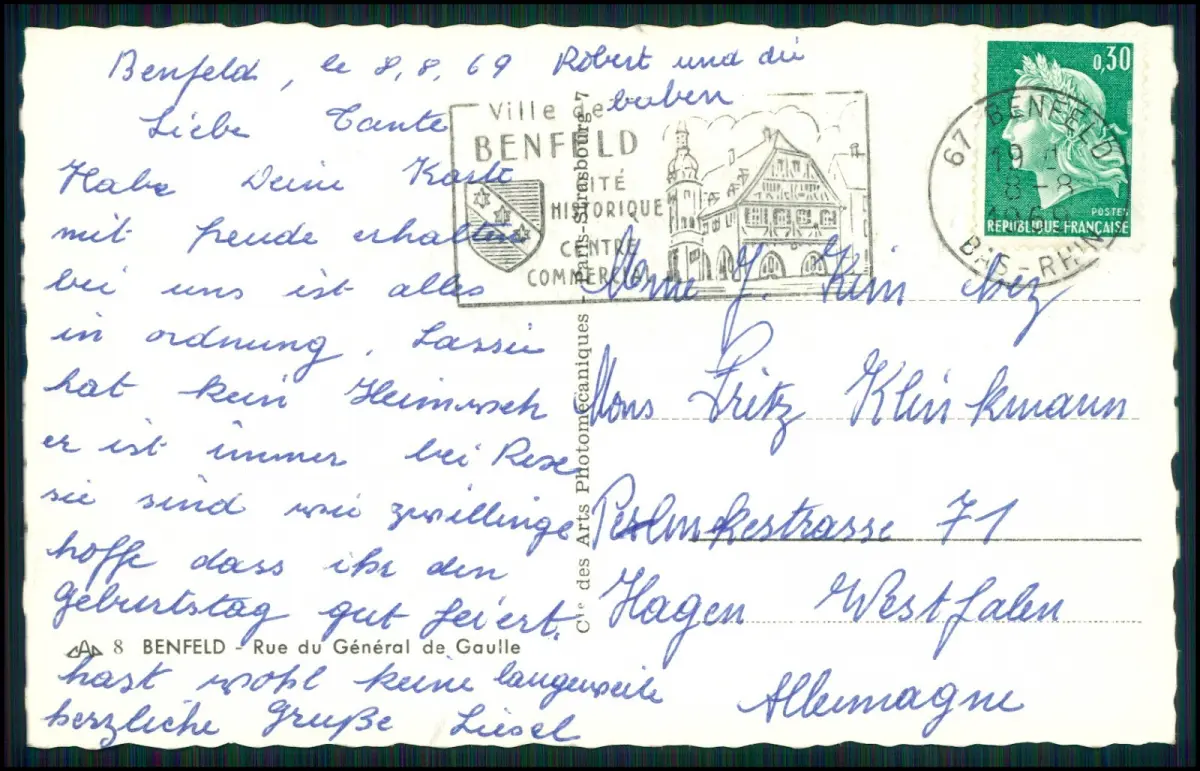 Benfeld, le 8.8.69 Robert und die
buben
Liebe Tante
Habe Deine Karte
mit freude erhalten
bei uns ist alles
in ordnung. Lassie
hat kein Heimweh
er ist immer bei Rex
sie sind wie zwillinge
hoffe dass ihr den
Geburtstag gut feiert.
8 BENFELD - Rue du Général de Gaulle
hast wohl keine langeweile
herzliche Gruße Liesel
Cie des Arts Photomécaniques - Paris-Strasbourg 7
Ville de
BENFELD
CITÉ
HISTORIQUE
CENTRE
COMMERCIAL
0,30
POSTES
REPUBLIQUE FRANÇAISE
67 BENFELD
8-8
BAS-RHIN
Mme J. chez
Mons Fritz Klinkmann
71
Hagen Westfalen
Allemagne